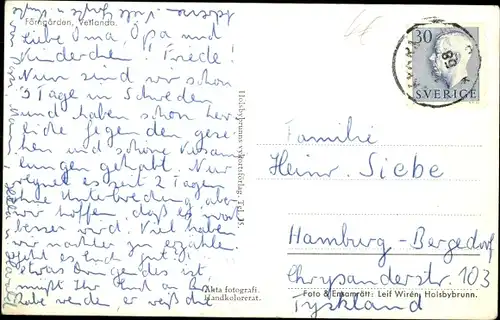 Forngården, Vetlanda.
Liebe Oma, Opa und
Kinderchen! Friede!
Nun sind wir schon
5 Tage in Schweden
und haben schon herr
liche Gegenden gese
hen und schöne Versamm
lungen gehabt. Nur
regnet es seit 2 Tagen
ohne Unterbrechung, aber
wir hoffen, daß es
besser wird. Viel haben
wir nachher zu erzählen.
Geht es Euch gut?
etwas Dringendes ist,
müßt Ihr Euch an
wenden, er weiß die
Hjolsbybrunns vykortsförlag. Tel. 35
Äkta fotografi.
Handkolorerat.
30
SVERIGE
Familie
Heinr. Siebe
Hamburg-Bergedorf
Chrysanderstr. 103
Tyskland
Foto & Ensamrätt: Leif Wirén, Holsbybrunn.